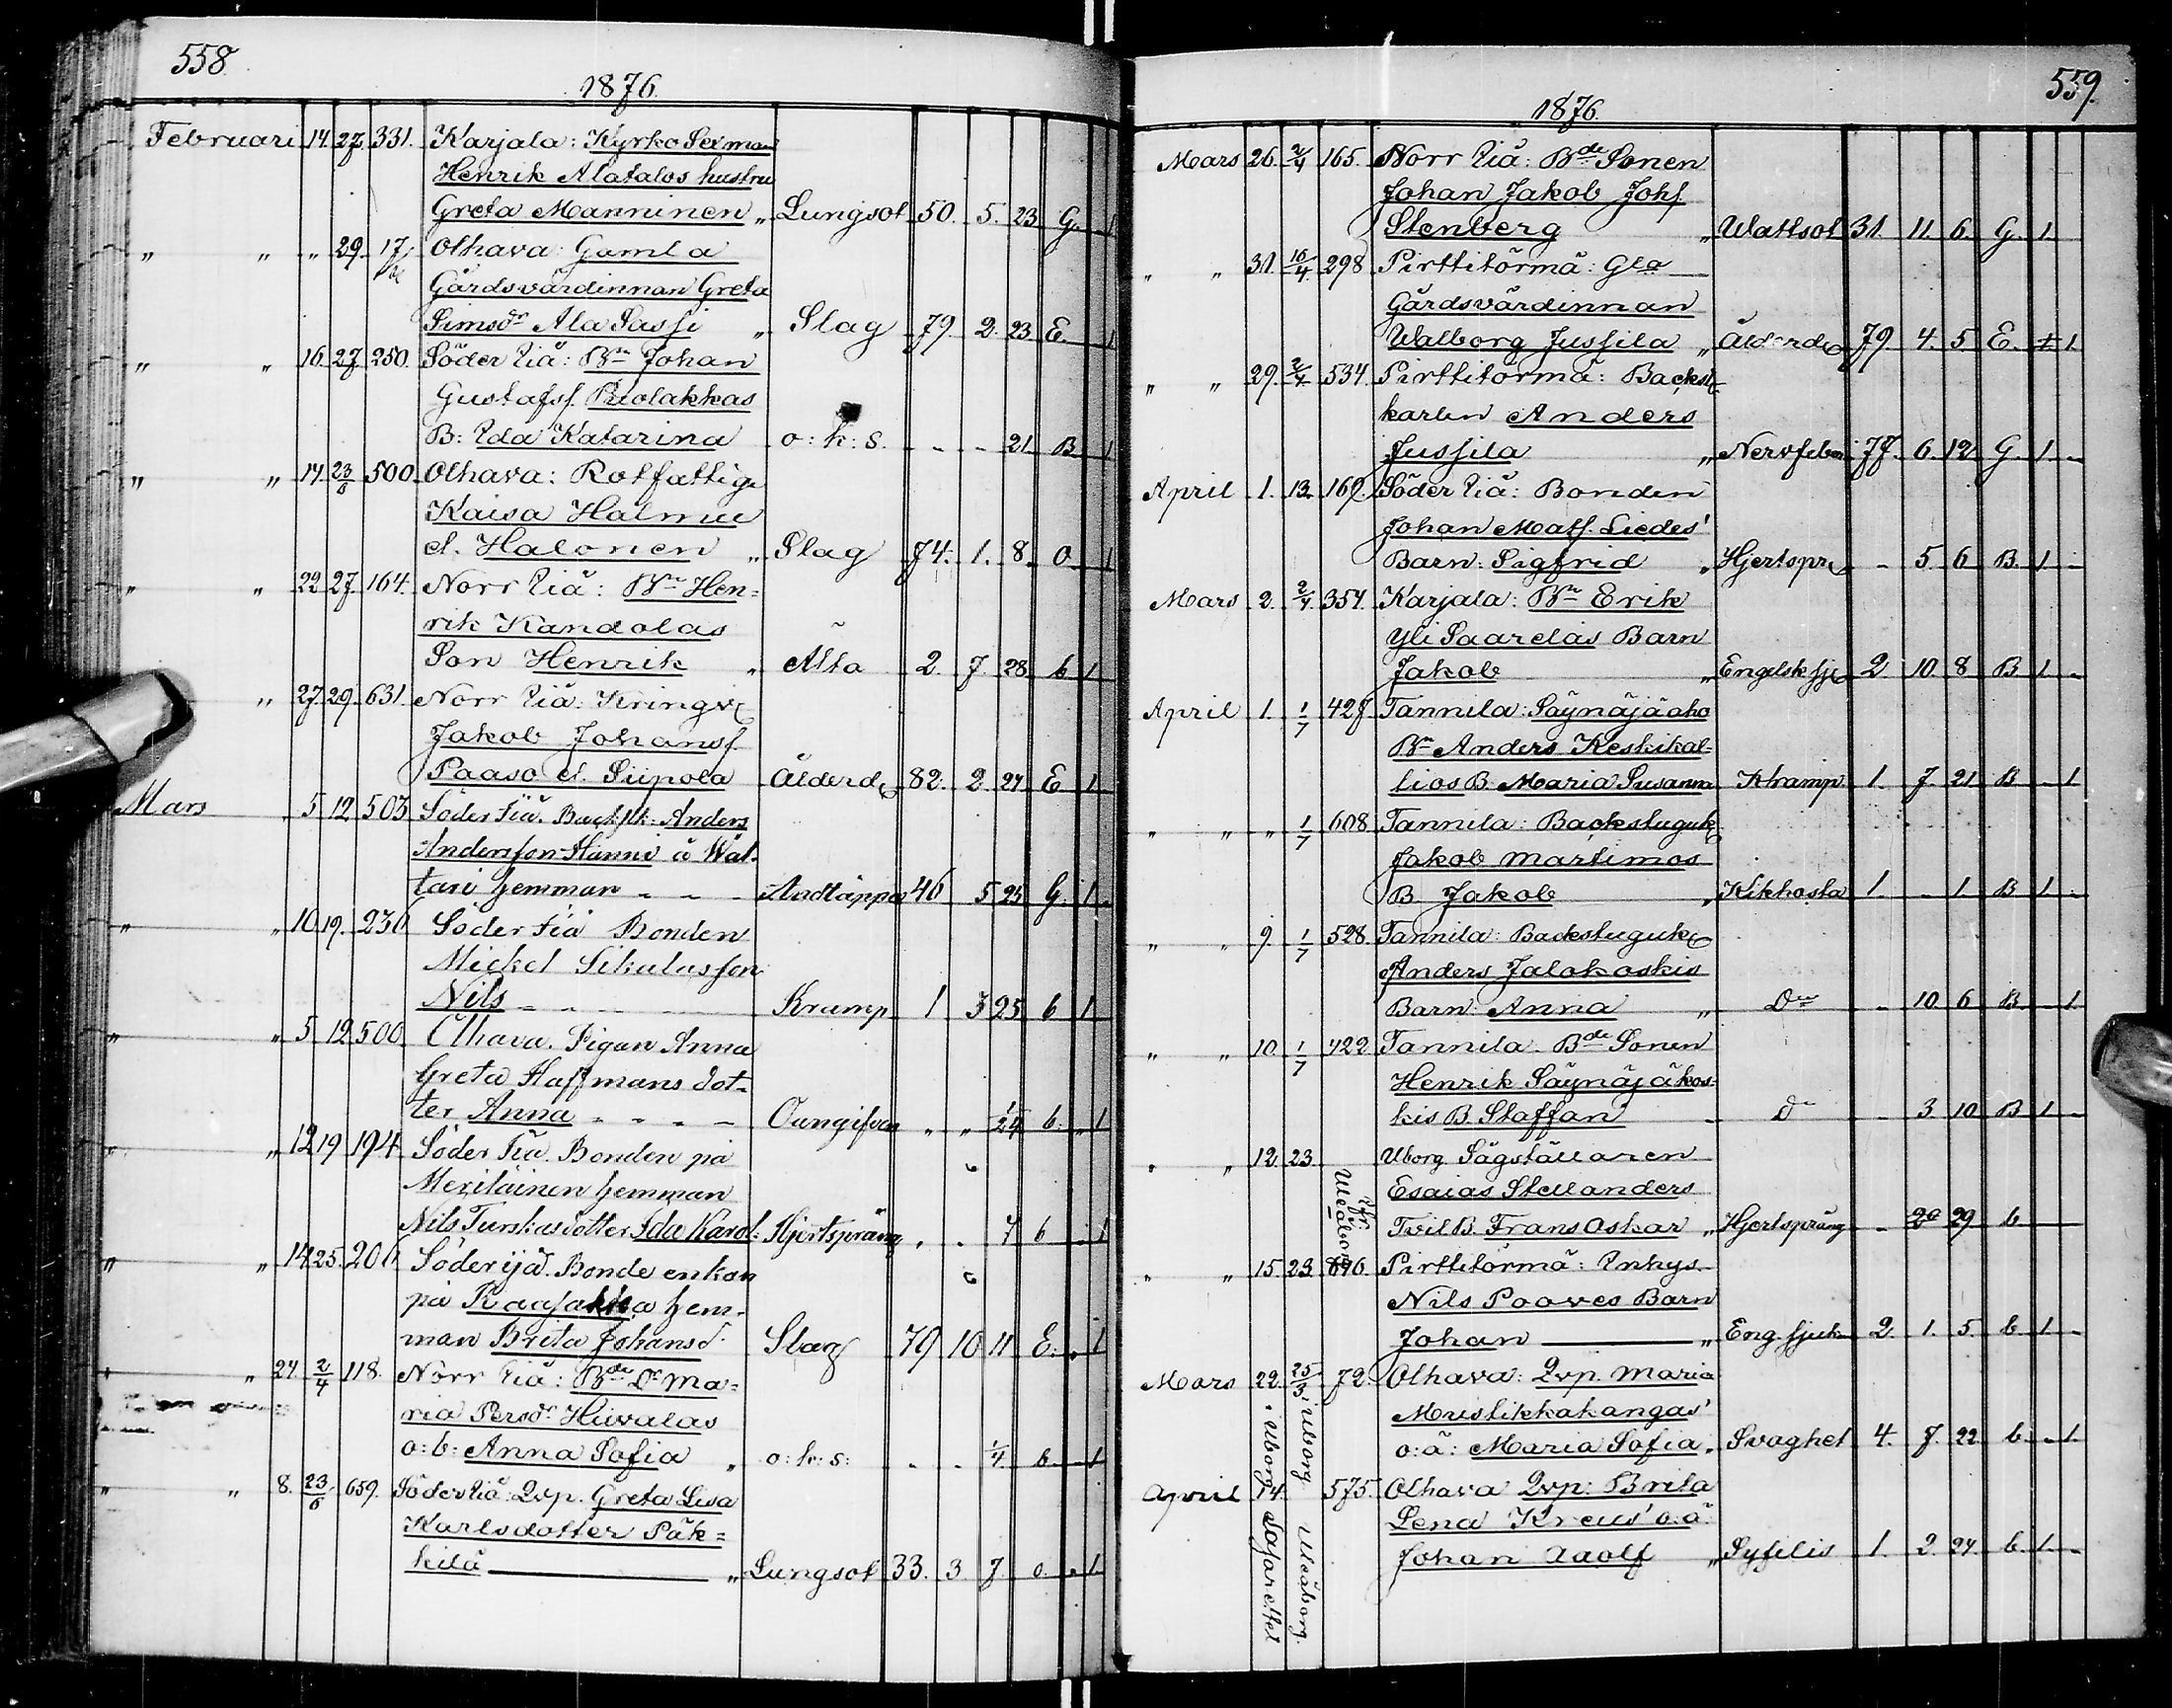 558.
1876.
Februari 14. 27. 331. Karjala: Kyrko Sexman
Henrik Alatalos hustru
Greta Manninen „ Lungsot 50. 5. 23 G. 1
„ „ „ 29. 17. Olhava: Gamla
Gårdsvärdinnan Greta
Simsdr Ala Sassi „ Slag 79. 2. 23 E. 1
„ „ 16. 27. 250. Söder Iiå: Bn Johan
Gustafss. Puolakkas
B: Ida Katarina o: k: s. - - 21. B. 1
„ „ 14. 23/5 500. Olhava: Rotfattige
Kaisa Halmu
el. Halonen „ Slag 74. 1. 8. O. 1
„ „ 22. 27. 164. Norr Iiå: Bn Hen=
rik Kandolas
Son Henrik „ Ålta 2. 7. 28. b 1
„ 27. 29. 631. Norr Iiå: Kringv
Jakob Johanss.
Paaso el. Siipola Ålderd 82. 2. 27. E 1
Mars 5 12 503 Söder Iiå. Backstk: Anders
Andersson Hannu å Wal-
tari hemman - - - Andtäppa 46 5 25 G. 1.
„ „ 10 19. 230 Söder Iiå Bonden
Mickel Sikalas son
Nils - - - Kramp 1 3 25 b 1
„ „ 5 12 500 Olhava. Pigan Anna
Greta Haffmans dot-
ter Anna - - - - Oangifven „ „ 1/24 b. „ 1
„ „ 12 19 194 Söder Iiå. Bonden på
Meriläinen hemman
Nils Turskas dotter Ida Karol: Hjertsprång „ . 7 b . 1
„ „ 14 25. 206 Söderijå. Bonde enkan
på Kaasakka hem-
man Brita Johansd. Slag 79 10 11 E. „ 1
„ 24. 2/4 118. Norr Iiå: Bde Dr Ma=
ria Persdr Hiivalas
o: b: Anna Sofia „ o: k: s: . . 1/4. b. - 1
„ „ 8. 23/5 659. Söder Iiå: Qvp. Greta Lisa
Karlsdotter Päk=
kilä „ Lungsot 33. 3. 7. o. . 1.
559.
1876.
Mars 26. 2/4 165. Norr Iiå: Bde Sonen
Johan Jakob Johs.
Stenberg „ Wattsot 31. 11. 6. G. 1.
„ „ 31. 16/4 298 Pirttitörmä: Gla
Gårdsvärdinnan
Walborg Jussila „ Ålderd 79. 4. 5. E. 1.
„ „ 29. 2/4 534. Pirttitörmä: Backst
karlen Anders
Jussila „ Nervfeber 77. 6. 12. G. 1. -
April 1. 13. 169. Söder Iiå: Bonden
Johan Mats. Liedes'
Barn: Sigfrid „ Hjertspr - 5. 6 B. 1. -
Mars 2. 2/4. 354. Karjala: Bn Erik
Yli Saarelas Barn
Jakob „ Engelsk sj 2. 10. 8 B 1. -
April 1. 1/7 427. Tannila: Säynäjäaho
Bn Anders Keskikal-
lios B: Maria Susanna Kramp. 1. 7. 21. B - 1
„ „ „ 1/7 608 Tannila: Backstuguk
Jakob Martimos
B. Jakob „ Kikhosta 1. - 1. B 1. -
„ „ 9. 1/7 528. Tannila: Backstuguk
Anders Jalokoskis
Barn: Anna „ Do - 10. 6 B - 1.
„ „ 10. 1/7 422 Tannila. Bde Sonen
Henrik Säynäjäkos-
kis B. Staffan - Do - 3. 10 B 1. -
„ „ 12. 23. Uborg. Sågställaren
Esaias Stellanders
Tvil B. Frans Oskar „ Hjertsprång - 29 b
ifr. Uleåborg
„ „ 15. 23. 696. Pirttitörmä: Inhys.
Nils Paaves Barn
Johan „ Eng. sjuk 2. 1. 5. b 1. -
Mars 22. 25/3 72. Olhava: Qvp. Maria
Mustikkakangas'
o: ä: Maria Sofia. Svaghet 4. 7. 22 b. . 1.
April 14. 575. Olhava Qvp: Brita
Lena Kreus' o: ä:
Johan Adolf „ Syfilis 1. 2. 24. b. 1. -
i Uborg Lasarettet
i Uborg. Uleåborg.